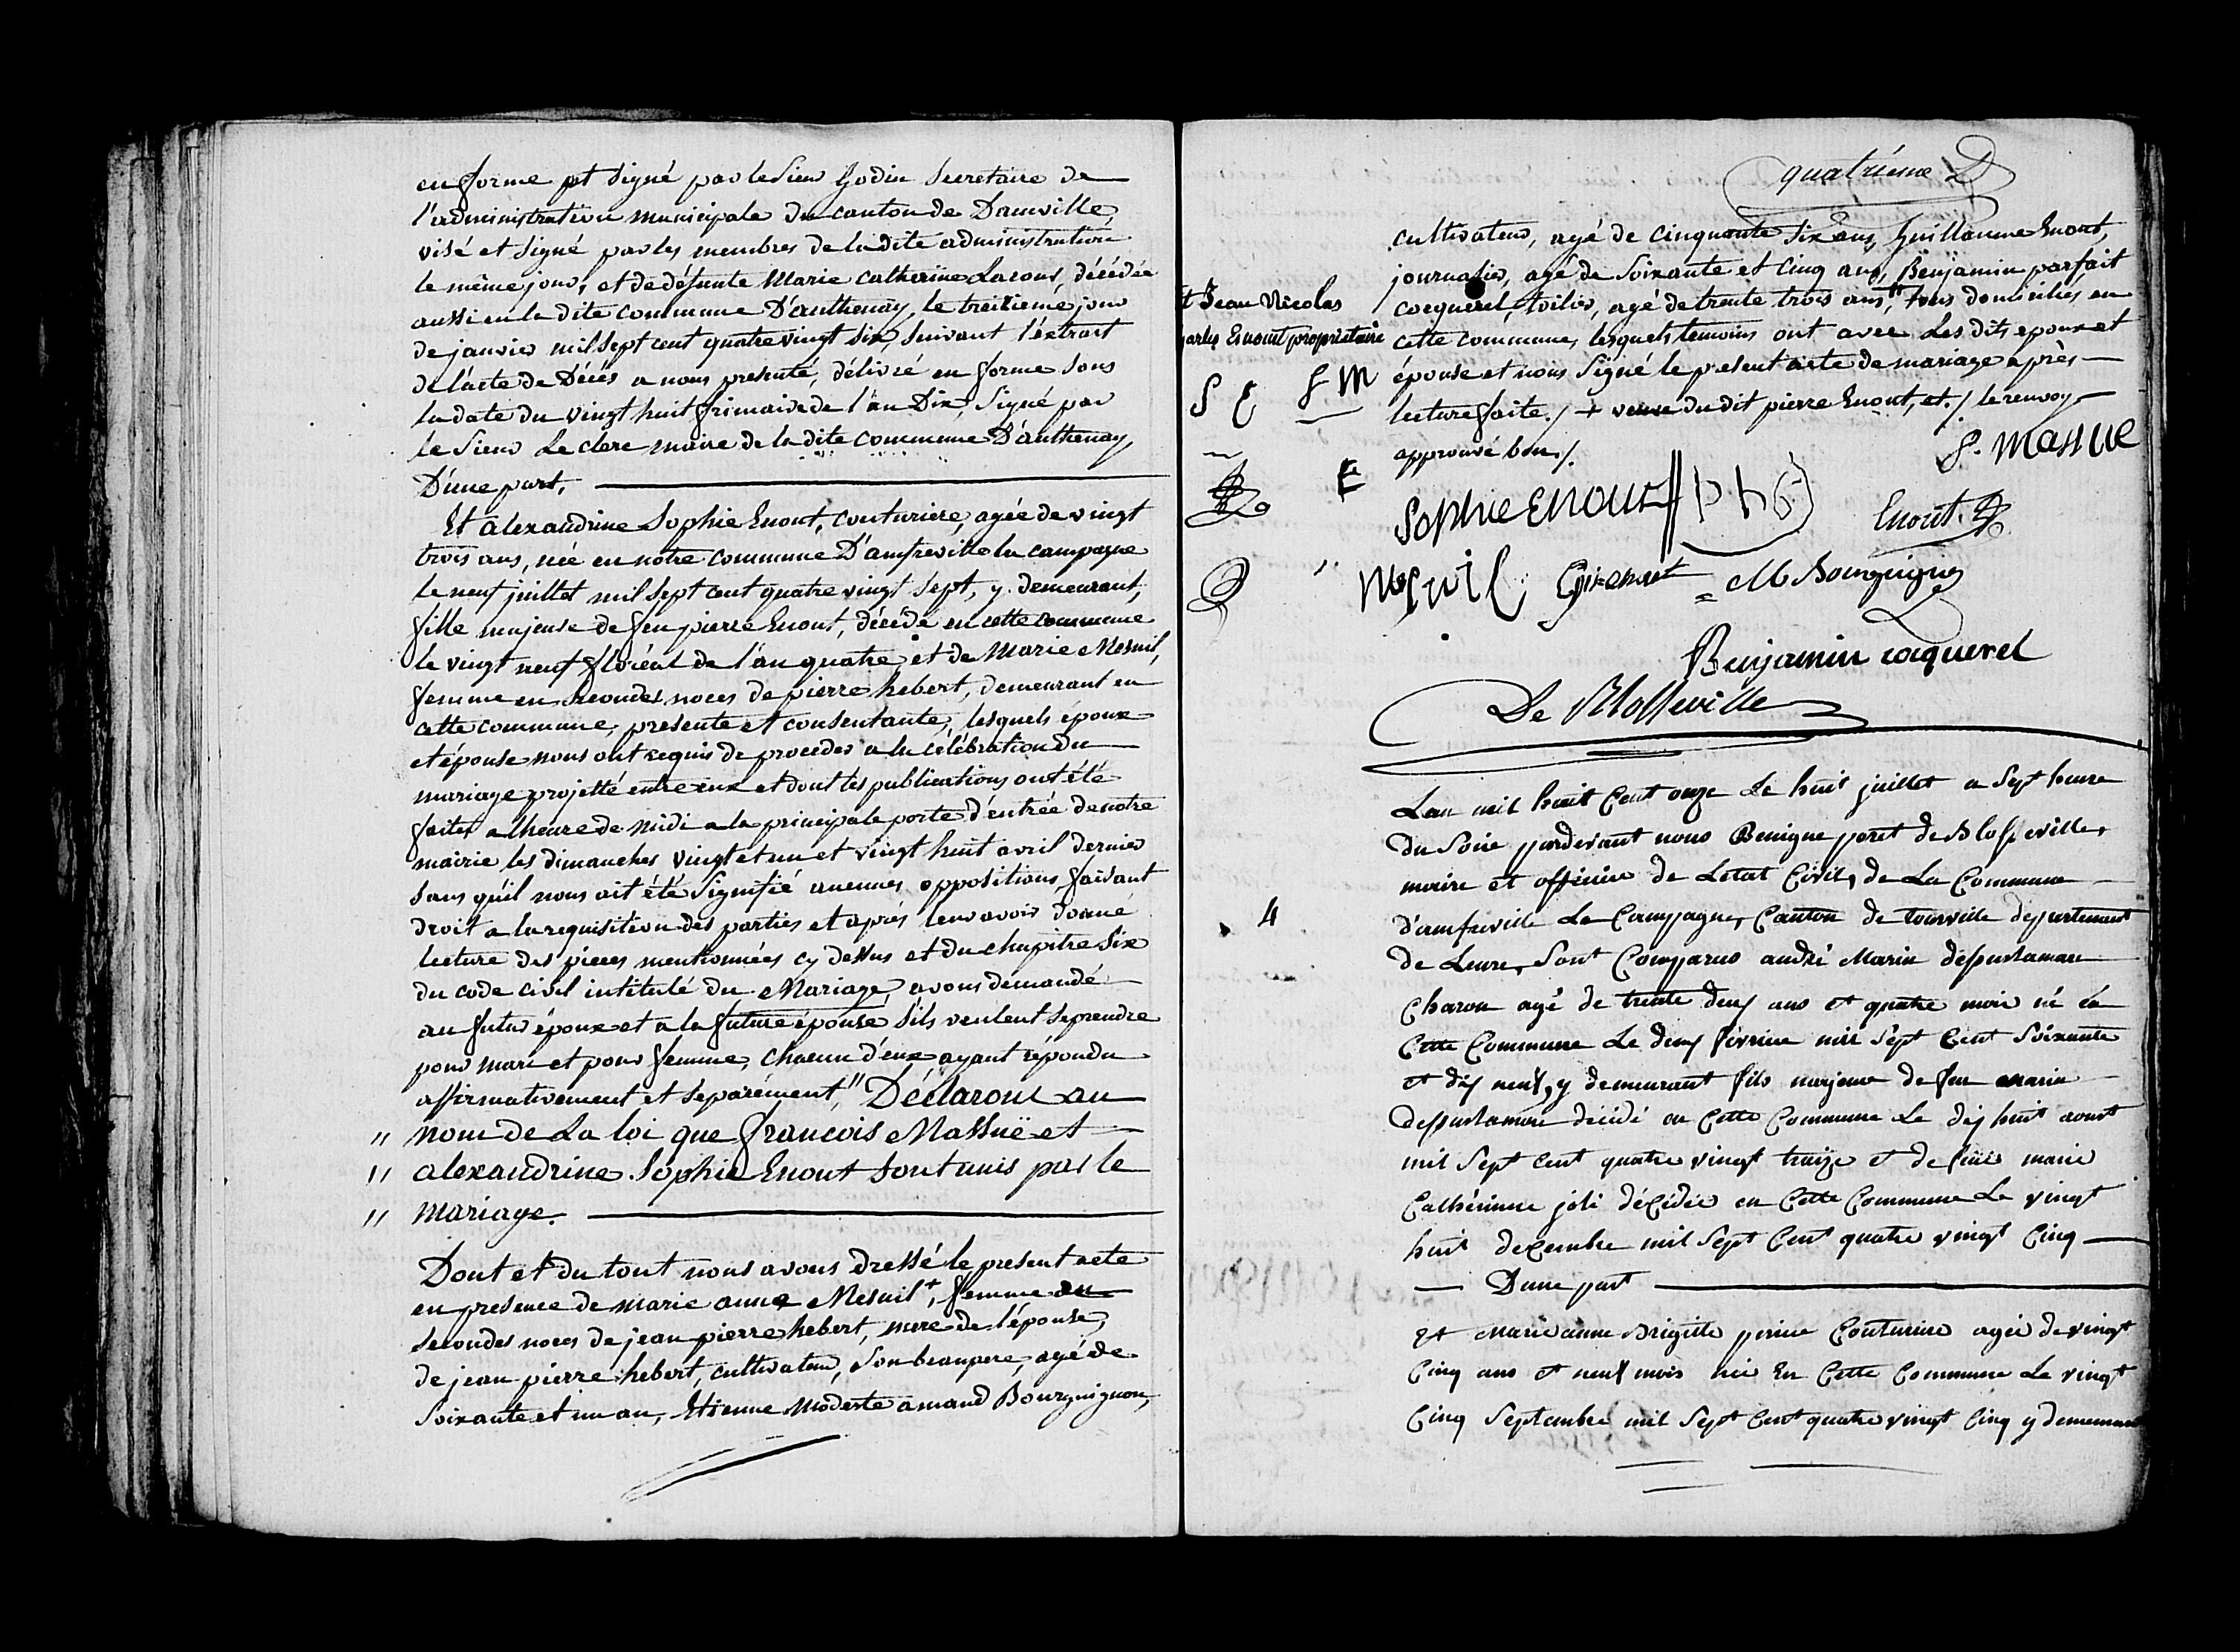 en forme et signé par le Sieur Godin Secretaire de
l'administration municipale du canton de Damville,
visé et signé par les membres de la dite administration
le même jour, et de défunte Marie Catherine Lacour, décédée
aussi en la dite commune D'authenay, le treizieme jour
de janvier mil sept cent quatre vingt six, suivant l'extrait
de l'acte de Décès a nous presenté, délivré en forme sous
la date du vingt huit frimaire de l'an Dix, signé par
le Sieur Le clerc maire de la dite commune D'authenay,
D'une part.
Et alexandrine Sophie Enout, couturiere, agée de vingt
trois ans, née en notre commune D'amfreville la campagne
le neuf juillet mil sept cent quatre vingt sept, y demeurant,
fille majeure de feu pierre Enout, décédé en cette commune
le vingt neuf floréal de l'an quatre, et de Marie Mesnil,
femme en secondes noces de pierre hebert, demeurant en
cette commune, presente et consentante, lesquels époux
et épouse nous ont requis de proceder a la célébration du
mariage projetté entre eux et dont les publications ont été
faites a lheure de midi a la principale porte d'entrée de notre
mairie les dimanches vingt et un et vingt huit avril dernier
sans qu'il nous ait été signifié aucunes oppositions, faisant
droit a la requisition des parties et après leur avoir donné
lecture des pieces mentionnées cy dessus et du chapitre six
du code civil intitulé du Mariage, avons demandé
au futur époux et a la future épouse s'ils veulent se prendre
pour mari et pour femme, chacun d'eux ayant répondu
affirmativement et separément, " Déclarons au
" nom de La loi que francois Massuë et
" alexandrine Sophie Enout sont unis par le
" mariage.
Dont et du tout nous avons dressé le present acte
en presence de marie anne Mesnil +, femme en
secondes noces de jean pierre hebert, mere de l'épouse,
de jean pierre hebert, cultivateur, son beaupere, agé de
soixante et un an, Etienne Modeste amand Bourguignon,
quatriéme
cultivateur, agé de cinquante six ans, Guillaume Enout,
journalier, agé de soixante et cinq ans, Benjamin parfait
cocquerel, toilier, agé de trente trois ans, tous domiciliés en
cette commune, lesquels temoins ont avec Les dits epoux et
épouse et nous signé le present acte de mariage après
lecture faite. / + veuve du dit pierre Enout, et. / le renvoy
approuvé bon. /.
t Jean Nicolas
arles Enout proprietaire
S E f. M
E
f. Massue
Sophie Enout
Enout
Mesnil
M Bourguignon
Benjamin coquerel
De Blosseville
4
Lan mil huit Cent onze Le huit juillet a Sept heure
du Soire pardevant nous Benigne poret de Blosseville,
maire et officier de Letat Civil, de La Commune
d'amfreville La Campagne, Canton de tourville departement
de Leure, Sont Comparus andré Marin
Charon agé de trente deux ans et quatre mois né en
Cette Commune Le deux fevrier mil Sept Cent Soixante
et dix neuf, y demeurant fils majeur de feu marin
décédé en Cette Commune Le dix huit aoust
mil Sept cent quatre vingt traize et de feüe marie
Catherinne joli déCédée en Cette Commune Le vingt
huit deCembre mil Sept Cent quatre vingt Cinq
Dune part
Et Marie anne Brigitte Couturiere agée de vingt
Cinq ans et neuf mois née En Cette Commune Le vingt
Cinq Septembre mil Sept Cent quatre vingt Cinq y demeurant